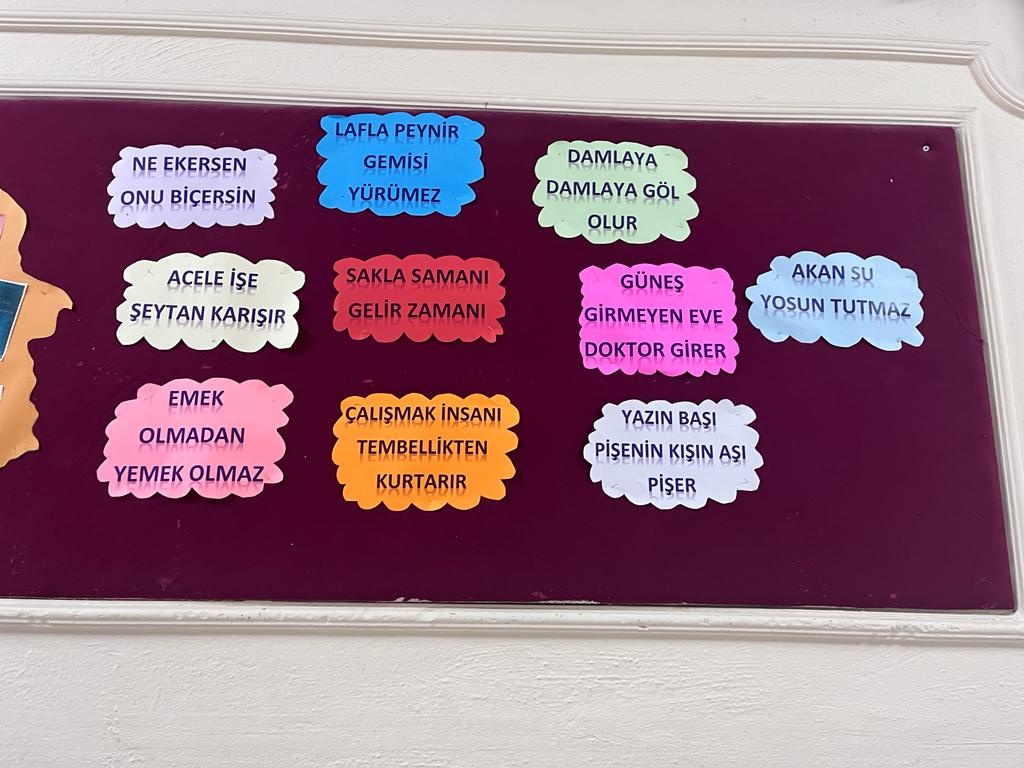 NE EKERSEN
ONU BİÇERSİN
LAFLA PEYNİR
GEMİSİ
YÜRÜMEZ
DAMLAYA
DAMLAYA GÖL
OLUR
ACELE İŞE
ŞEYTAN KARIŞIR
SAKLA SAMANI
GELİR ZAMANI
GÜNEŞ
GİRMEYEN EVE
DOKTOR GİRER
AKAN SU
YOSUN TUTMAZ
EMEK
OLMADAN
YEMEK OLMAZ
ÇALIŞMAK İNSANI
TEMBELLİKTEN
KURTARIR
YAZIN BAŞI
PİŞENİN KIŞIN AŞI
PİŞER